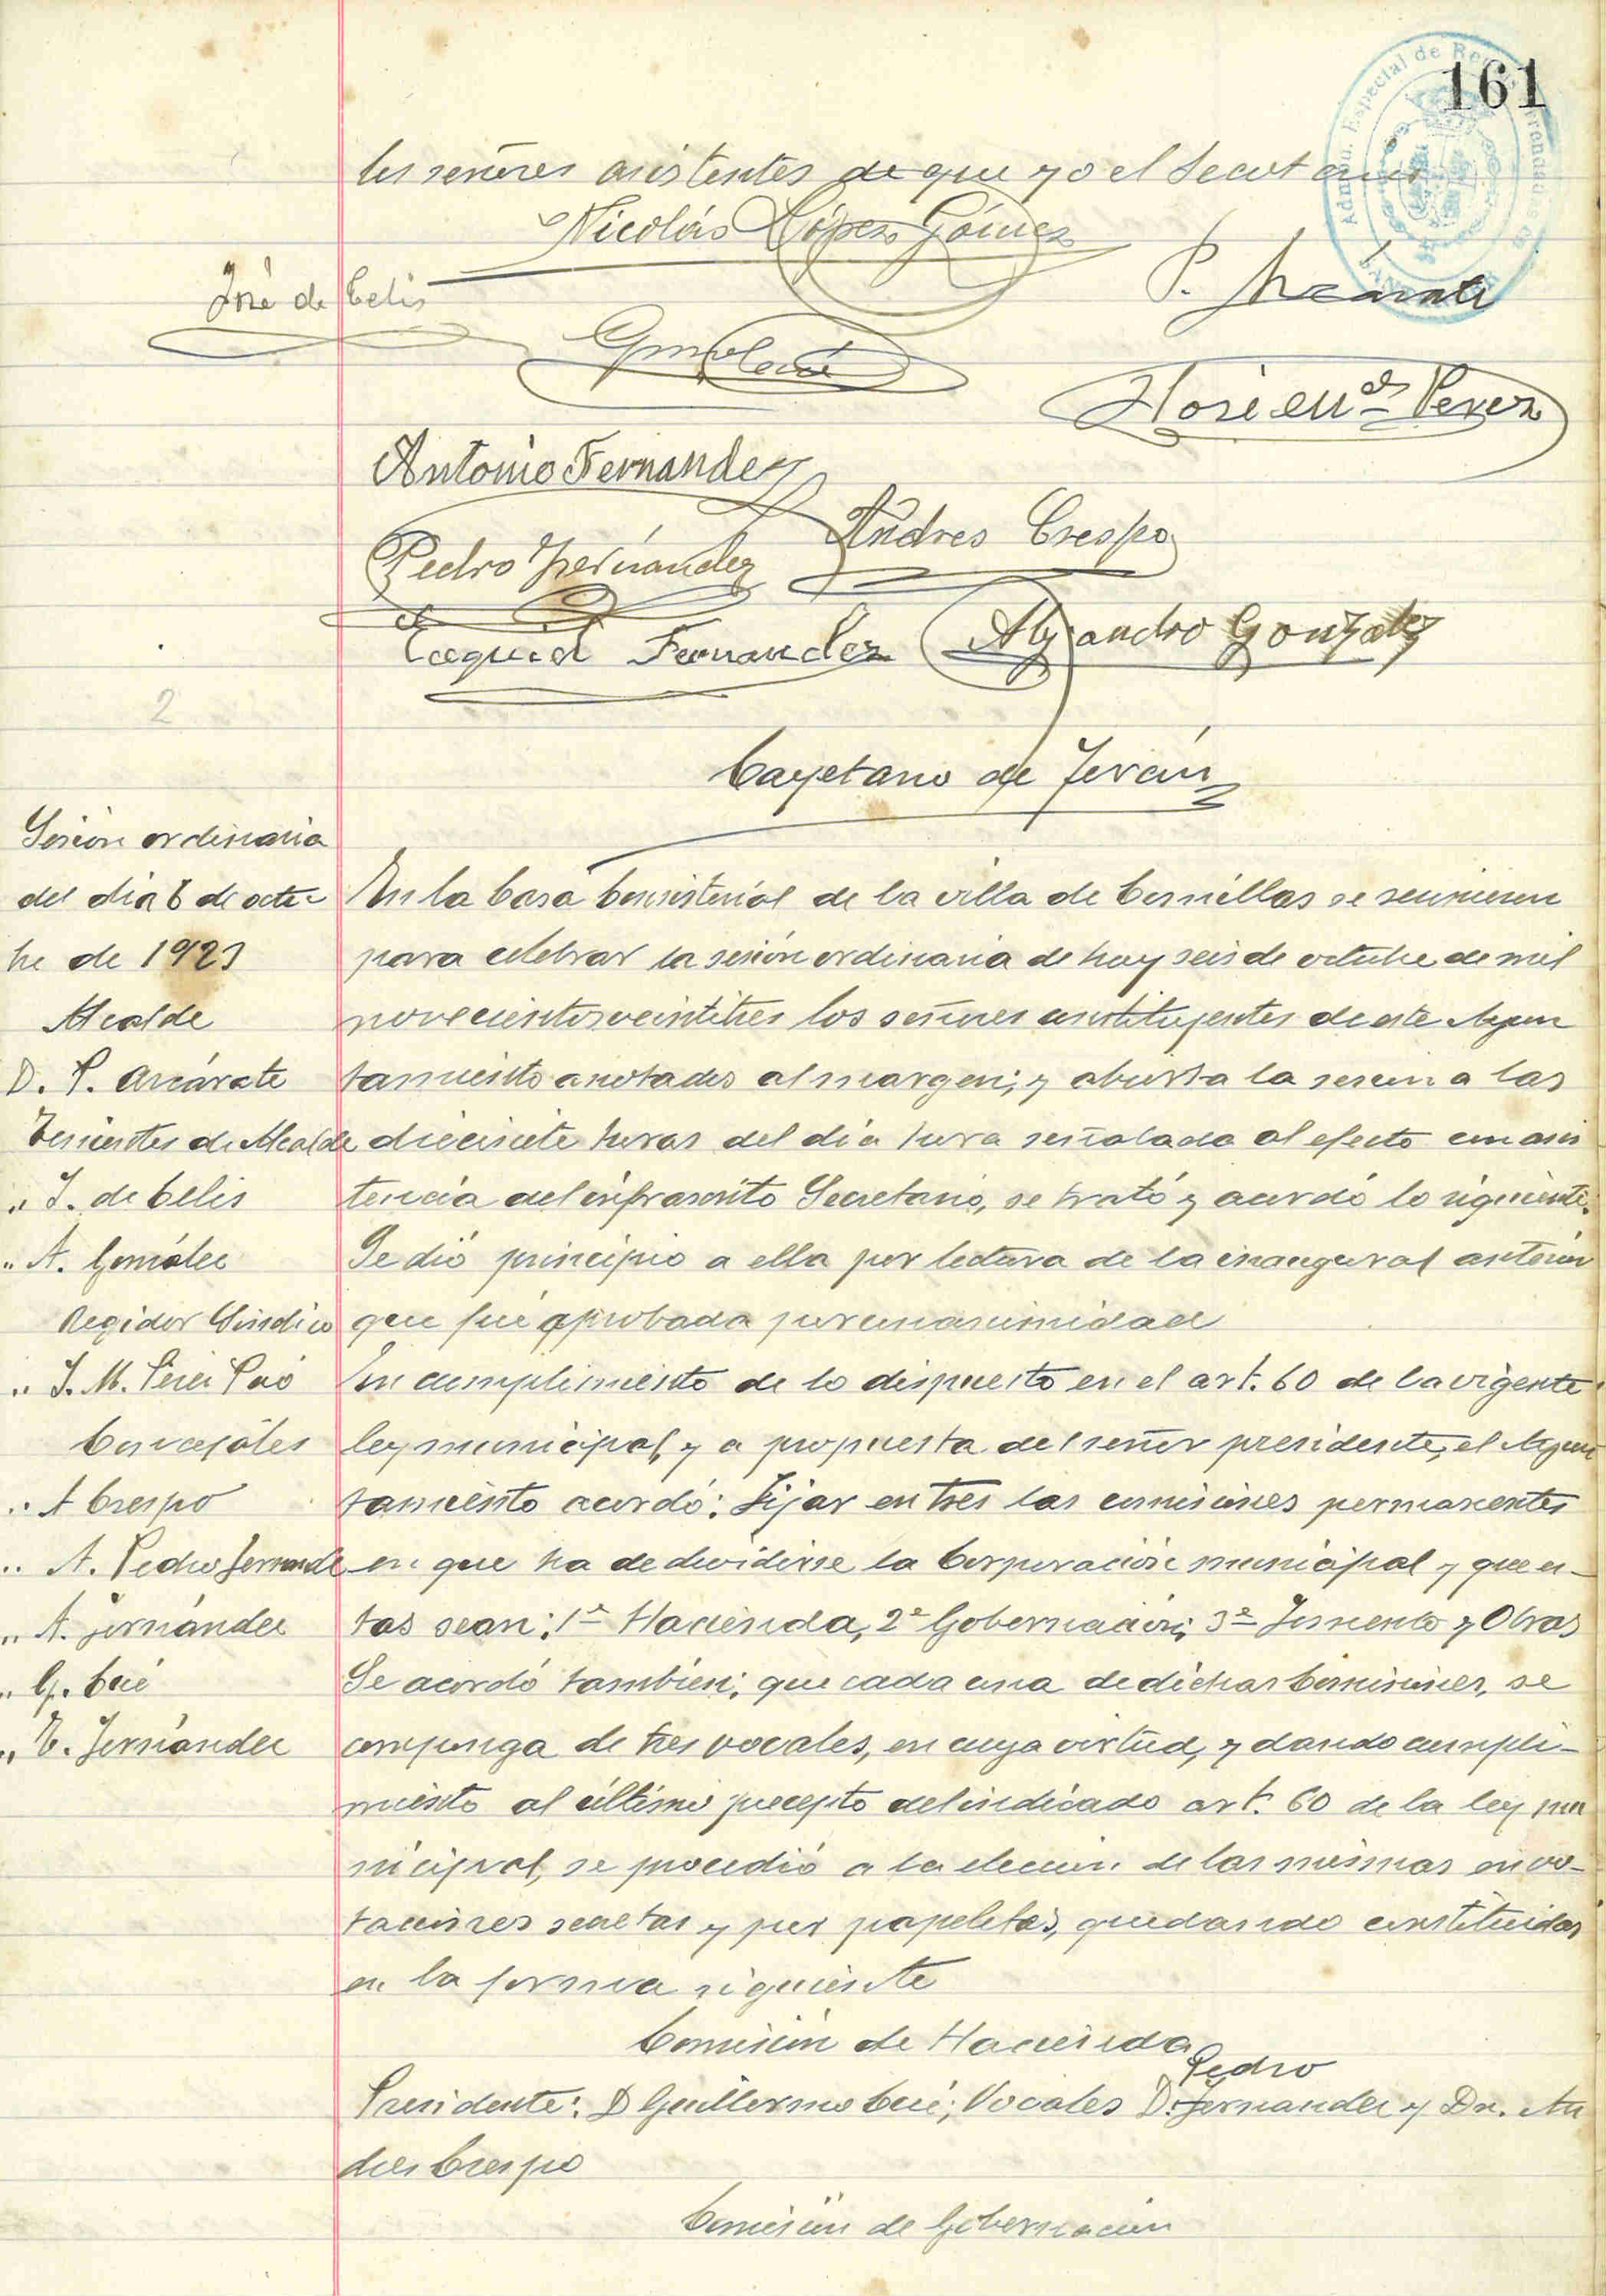 161
Admón. Especial de
los señores asistentes de que yo el Secretario
Nicolás López Gómez
P. Azcárate
José de Celis
G Cué
José M.ª Perez
Antonio Fernandez
Andres Crespo
Pedro Fernandez
Ezequiel Fernandez
Alejandro Gonzalez
2
Cayetano de Terán
Sesión ordinaria
del dia 6 de octu-
bre de 1923
Alcalde
D. P. Azcárate
Tenientes de Alcalde
" J. de Celis
" A. González
Regidor Síndico
" J. M. Pérez
Concejales
" A Crespo
" A. Pedro Fernande
" A. Fernández
" G. Cué
" E. Fernández
En la Casa Consistorial de la villa de Comillas se reunieron
para celebrar la sesión ordinaria de hoy seis de octubre de mil
novecientos veintitres los señores constituyentes de este Ayun
tamiento anotados al margen; y abierta la sesion a las
diecisiete horas del día hora señalada al efecto con asis
tencia del infrascrito Secretario, se trató y acordó lo siguiente.
Se dió principio a ella por lectura de la inaugural anterior
que fué aprobada por unanimidad
En cumplimiento de lo dispuesto en el art. 60 de la vigente
ley municipal, y a propuesta del señor presidente, el Ayun
tamiento acordó: Fijar en tres las comisiones permanentes
en que ha de dividirse la Corporación municipal y que es-
tas sean: 1ª Hacienda, 2ª Gobernación; 3ª Fomento y Obras
Se acordó también; que cada una de dichas Comisiones, se
componga de tres vocales, en cuya virtud, y dando cumpli-
miento al último precepto del indicado art. 60 de la ley mu
nicipal, se procedió a la elección de las mismas en vo-
taciones secretas y por papeletas, quedando constituidas
en la forma siguiente
Comisión de Hacienda
Pedro
Presidente: D Guillermo Cué; Vocales D. Fernandez y Dn. An
dres Crespo
Comisión de Gobernación